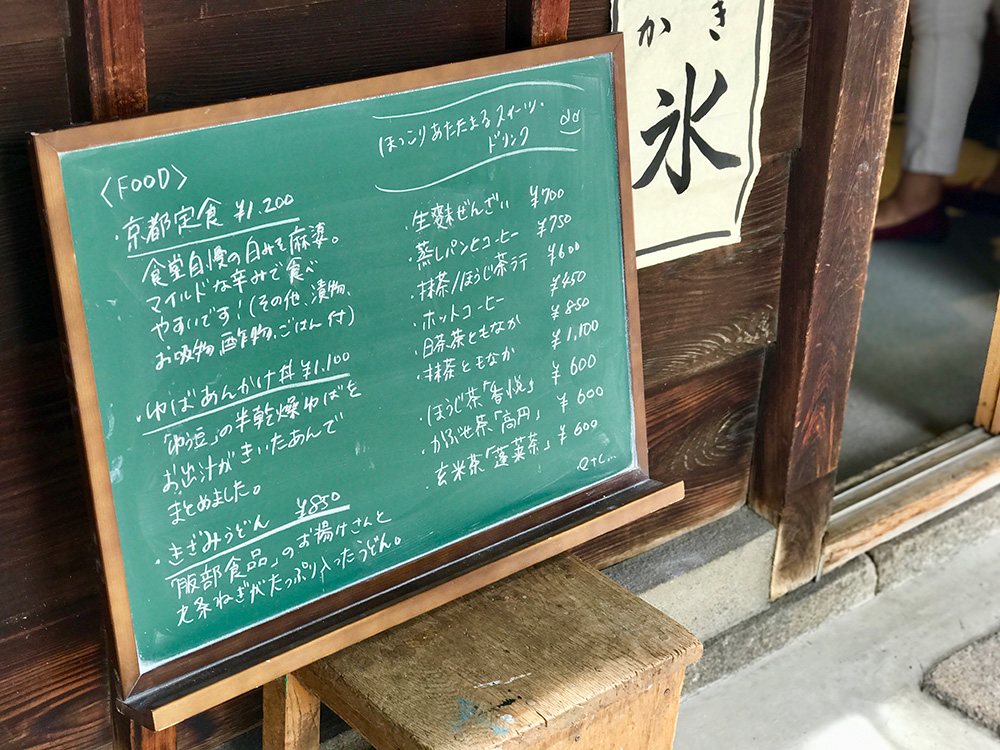 〈FOOD〉
・京都定食 ¥1,200
食堂自慢の白みそ麻婆。
マイルドな辛みで食べ
やすいです!(その他、漬物、
お吸物、酢物、ごはん付)
・ゆばあんかけ丼 ¥1,100
「ゆう豆」の半乾燥ゆばを
お出汁がきいたあんで
まとめました。
・きざみうどん ¥850
「服部食品」のお揚げさんと
九条ねぎがたっぷり入ったうどん。
ほっこりあたたまるスイーツ・
ドリンク
・生麩ぜんざい ¥700
・蒸しパンとコーヒー ¥750
・抹茶/ほうじ茶ラテ ¥600
・ホットコーヒー ¥450
・日茶茶ともなか ¥850
・抹茶ともなか ¥1,100
・ほうじ茶「香悦」 ¥600
・かぶせ茶「高円」 ¥600
・玄米茶「蓬莱茶」 ¥600
etc...
かき
氷